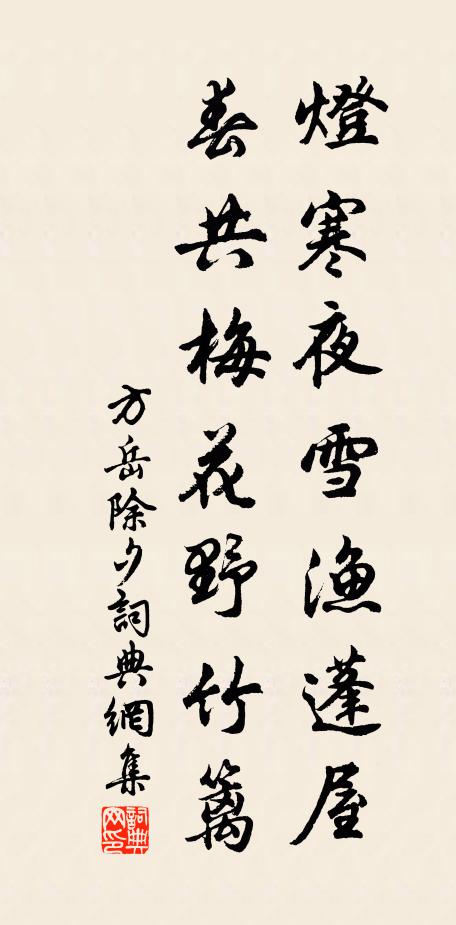 燈寒夜雪漁蓬屋
春共梅花野竹籬
方岳除夕詞典網集
詞典
网印